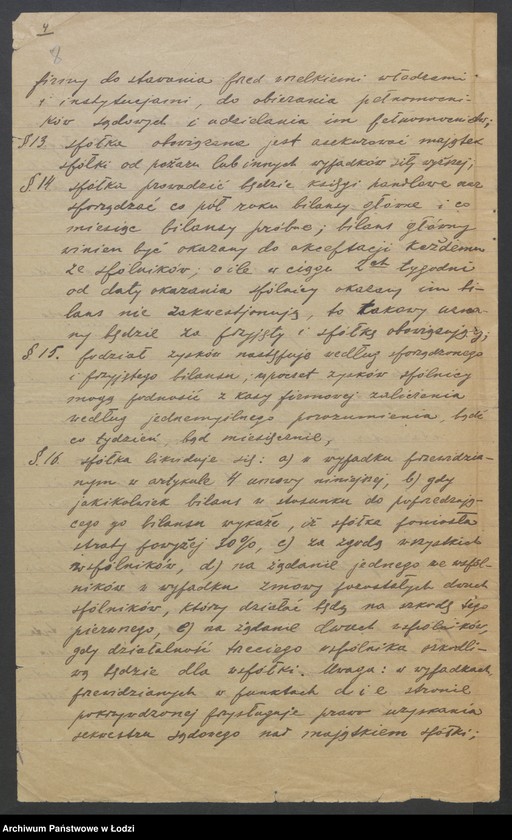 4
8
firmy do stawania przed wszelkiemi władzami
i instytucjami, do obierania pełnomocni-
ków sądowych i udzielania im pełnomocnictw;
§ 13. spółka obowiązana jest asekurować majątek
spółki od pożaru lub innych wypadków siły wyższej;
§. 14. spółka prowadzić będzie księgi handlowe oraz
sporządzać co pół roku bilansy główne i co
miesiąc bilansy próbne; bilans główny
winien być okazany do akceptacji każdemu
ze spólników; o ile w ciągu 2ch tygodni
od daty okazania spólnicy okazany im bi-
lans nie zakwestjonują, to takowy uzna-
ny będzie za przyjęty i spółkę obowiązujący;
§ 15. podział zysków następuje według sporządzonego
i przyjętego bilansu, wpoczet zysków spólnicy
mogą podnosić z kasy firmowej zaliczenia
według jednomyślnego porozumienia, bądź
co tydzień, bąd miesięcznie;
§. 16. spółka likwiduje się: a) w wypadku przewidzia-
nym w artykule 4 umowy niniejszej, b) gdy
jakikolwiek bilans w stosunku do poprzedzają-
cego go bilansu wykaże, iż spółka poniosła
straty powyżej 30%, c) za zgodą wszystkich
wspólników, d) na żądanie jednego ze wspól-
ników w wypadku zmowy pozostałych dwuch
spólników, który działać będą na szkodę tego
pierwszego, e) na żądanie dwuch wspólników,
gdy działalność trzeciego wspólnika szkodli-
wą będzie dla wspólki. Uwaga: w wypadkach
przewidzianych w punktach d i e stronie
pokrzywdzonej przysługuje prawo uzyskania
sekwestru sądowego nad majątkiem spółki;
Archiwum Państwowe w Łodzi